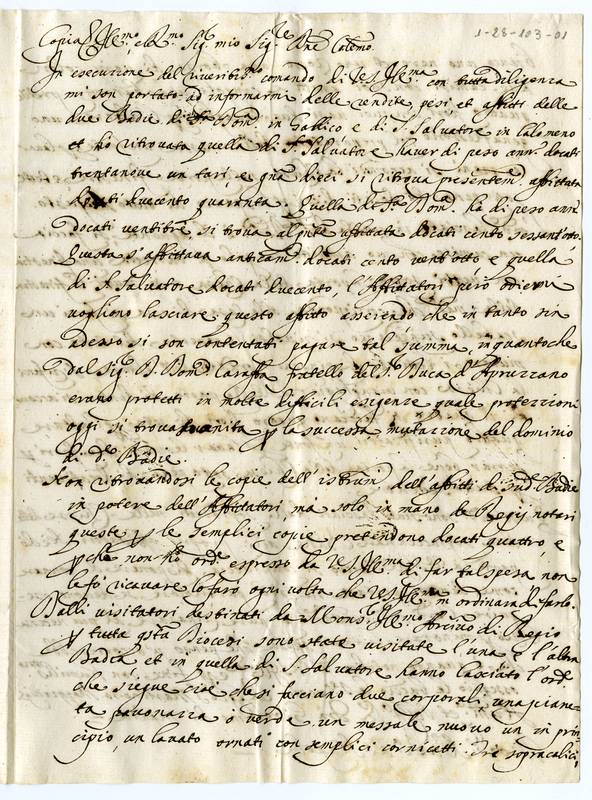 1-28-103-01
Copia Ill.mo e R.mo Sig.r mio Sig.re P.ne Colemo.
In esecuzione del riverit.mo comando di V.S. Ill.ma con tutta diligenza
mi son portato ad informarmi delle vendite, pesi et affitti delle
due Badie di S. Dom.co in Gallico e di S. Salvatore in Calomeno
et ho ritrovata quella di S. Salvatore haver di peso ann.o docati
trentanove un tarì, e g.na dieci si ritrova presentem.e affittata
docati duecento quaranta. Quella di S. Dom.co ha di peso ann.o
docati ventitre, si trova al p.nte affittata docati cento sessant'otto.
Questa s'affittava anticam.e docati cento vent'otto e quella
di S. Salvatore docati duecento, l'Affittatori però odierni
vogliono lasciare questo affitto asserendo che in tanto sin
adesso si son contentati pagare tal summa, in quantoche
dal Sig.r D. Dom.co Caraffa fratello del S.r Duca d'Apruzzano
erano protetti in molte difficili esigenze quale protezzioni
oggi si trova svanita p le successa mutazzione del dominio
di d.e Badie.
Non ritrovandosi le copie dell'istrum.ti dell'affitti di sud.e Badie
in potere dell'Affittatori, ma solo in mano de Regij notari
queste p le semplici copie pretendono docati quattro, e
p che non hò ord.e espresso da V.S. Ill.ma di far tal spesa non
le fò ricavare lo farò ogni volta che V.S. Ill.ma m'ordinarà di farlo.
Dalli visitatori destinati da Mons.r Ill.mo Arcivo di Regio
p tutta q.sta Diocesi sono state visitate l'una e l'altra
Badia et in quella di S. Salvatore hanno lasciato l'ord.e
che siegue cioè che si facciano due corporali, una piane-
ta pavonazza ò verde un messale nuovo un in prin-
cipio, un lavabo ornati con semplici cornicetti. Tre sopracalici,